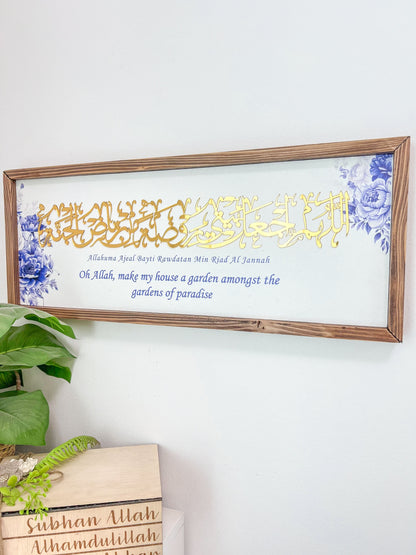 اللهم اجعل بيتي روضة من رياض الجنة
Allahuma Ajeal Bayti Rawdatan Min Riad Al Jannah
Oh Allah, make my house a garden amongst the
gardens of paradise
Subhan Allah
Alhamdulillah